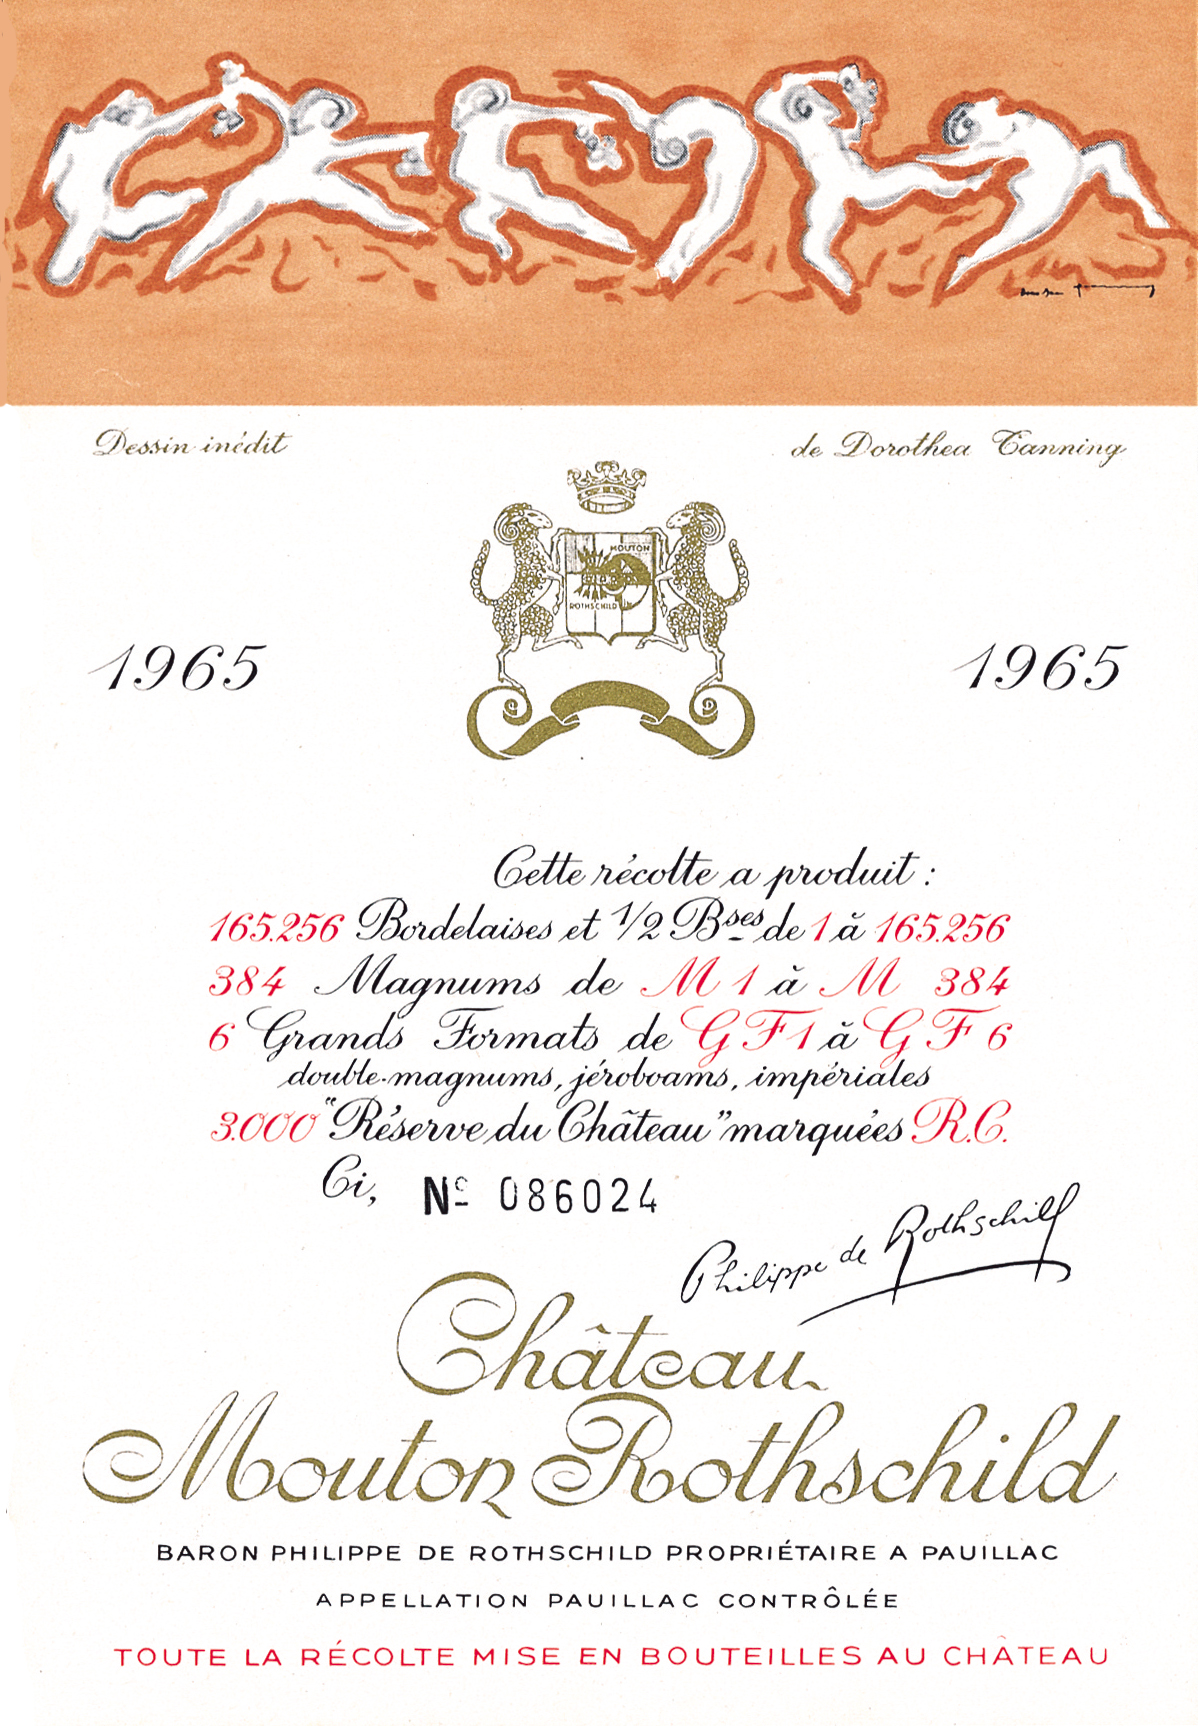 Dorothea Tanning
Dessin inédit
de Dorothea Tanning
MOUTON
ROTHSCHILD
1965
1965
Cette récolte a produit :
165.256 Bordelaises et 1/2 Bses de 1 à 165.256
384 Magnums de M 1 à M 384
6 Grands Formats de G F 1 à G F 6
double-magnums, jéroboams, impériales
3.000 "Réserve du Château" marquées R.C.
Ci, No 086024
Philippe de Rothschild
Château
Mouton Rothschild
BARON PHILIPPE DE ROTHSCHILD PROPRIÉTAIRE A PAUILLAC
APPELLATION PAUILLAC CONTRÔLÉE
TOUTE LA RÉCOLTE MISE EN BOUTEILLES AU CHÂTEAU